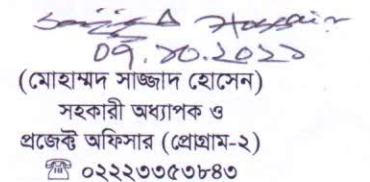 Sajjad Hossain
০৭.১০.২০২১
(মোহাম্মদ সাজ্জাদ হোসেন)
সহকারী অধ্যাপক ও
প্রজেক্ট অফিসার (প্রোগ্রাম-২)
☎ ০২২২৩৩৫৩৮৪৩